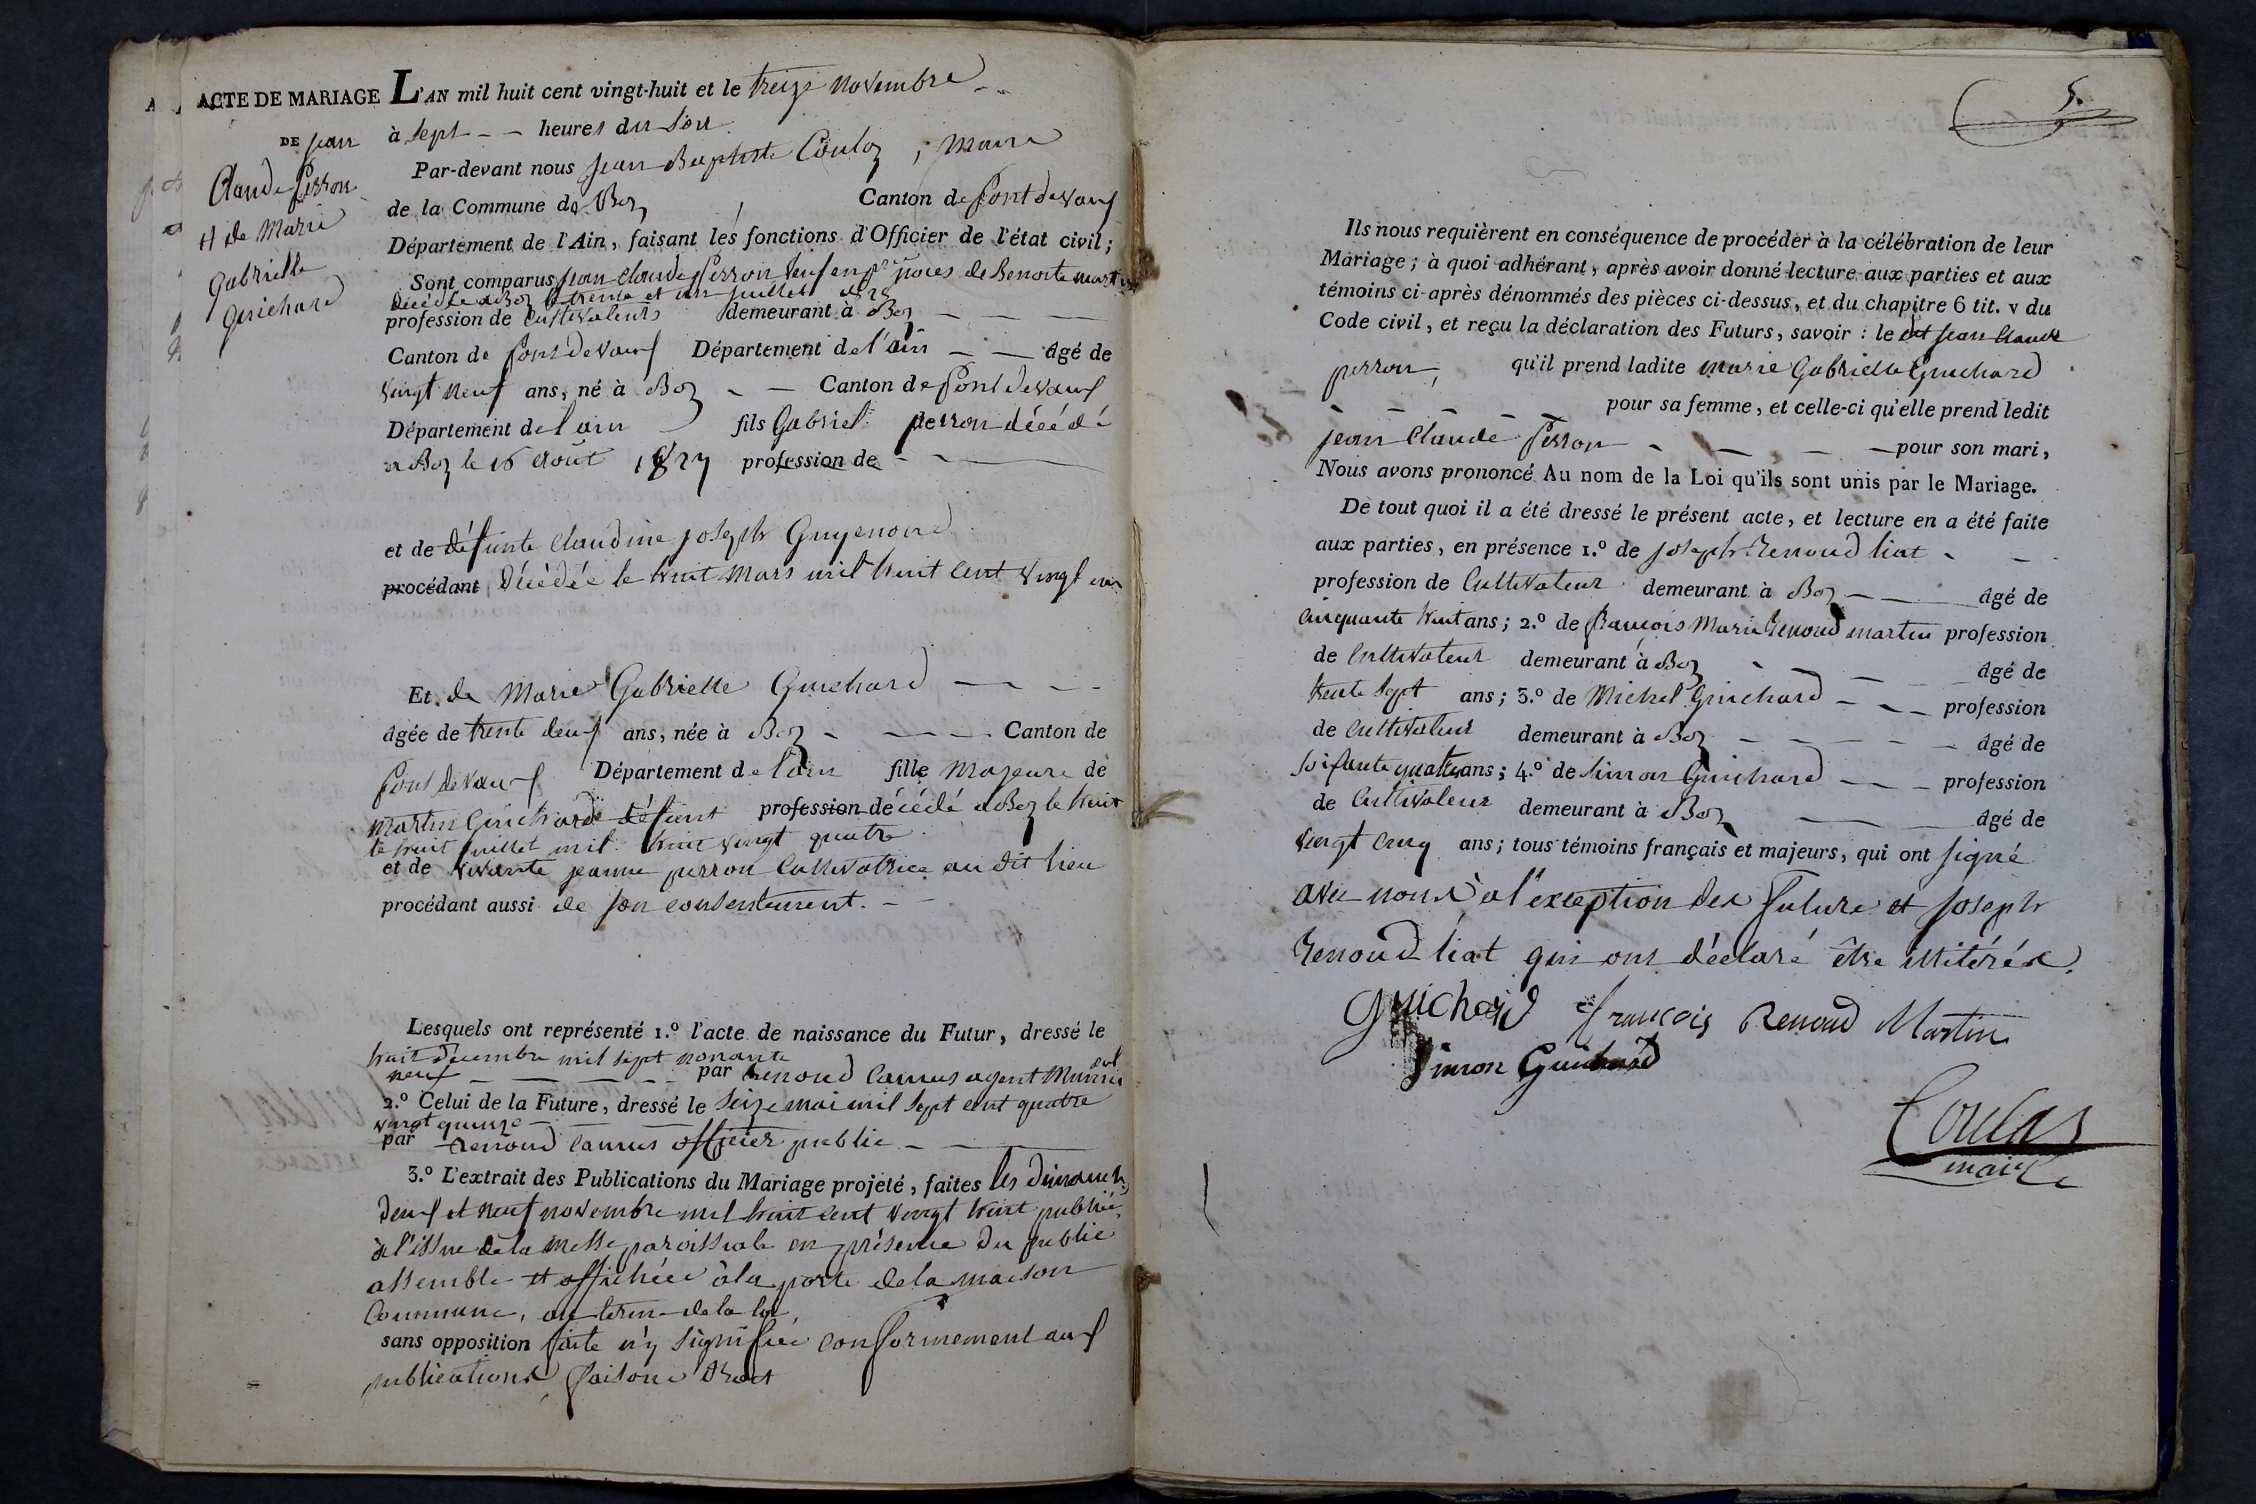 ACTE DE MARIAGE
DE jean
Claude perron
et de Marie
Gabrielle
Guichard
L'AN mil huit cent vingt-huit et le treize novembre
à sept heures du soir
Par-devant nous jean Baptiste Coulas, maire
de la Commune de Boz, Canton de pontdevaux
Département de l'Ain, faisant les fonctions d'Officier de l'état civil;
Sont comparus jean claude perron veuf en noces de Benoite martin
décédée a Boz le trente et un juillet
profession de cultivateurs demeurant à Boz
Canton de pontdevaux Département de l'ain âgé de
vingt neuf ans, né à Boz Canton de pontdevaux
Département de l'ain fils Gabriel perron décédé
a Boz le 16 août 1827 profession de
et de défunte claudine joseph Guyenond
procédant décédée le huit mars mil huit cent vingt un
Et de Marie Gabrielle Guichard
âgée de trente deux ans, née à Boz Canton de
pontdevaux Département de l'ain fille majeure de
martin Guichard défunt profession décédé a Boz le huit
le huit juillet mil huit vingt quatre
et de vivante jeanne perron cultivatrice au dit lieu
procédant aussi de son consentement.
Lesquels ont représenté 1.º l'acte de naissance du Futur, dressé le
huit decembre mil sept nonante
neuf par renoud camus agent municipal
2.º Celui de la Future, dressé le seize mai mil sept cent quatre
vingt quinze
par renoud camus officier public
3.º L'extrait des Publications du Mariage projeté, faites les dimanch
deux et neuf novembre mil huit cent vingt huit publiée
à l'issue de la messe paroissiale en présence du public
assemblé et affichée à la porte de la maison
commune, au terme de la loi
sans opposition faite n'y signifiée conformement aux
publications faisons droit
5.
Ils nous requièrent en conséquence de procéder à la célébration de leur
Mariage; à quoi adhérant, après avoir donné lecture aux parties et aux
témoins ci-après dénommés des pièces ci-dessus, et du chapitre 6 tit. v du
Code civil, et reçu la déclaration des Futurs, savoir : le dit jean claude
perron, qu'il prend ladite marie Gabrielle Guichard
pour sa femme, et celle-ci qu'elle prend ledit
jean claude perron pour son mari,
Nous avons prononcé Au nom de la Loi qu'ils sont unis par le Mariage.
De tout quoi il a été dressé le présent acte, et lecture en a été faite
aux parties, en présence 1.º de joseph renoud liat
profession de cultivateur demeurant à Boz âgé de
cinquante huit ans; 2.º de francois marie renoud martin profession
de cultivateur demeurant à Boz âgé de
trente sept ans; 3.º de Michel Guichard profession
de cultivateur demeurant à Boz âgé de
soixante quatre ans; 4.º de simon Guichard profession
de cultivateur demeurant à Boz âgé de
vingt cinq ans; tous témoins français et majeurs, qui ont signé
avec nous à l'exception des futurs et joseph
renoud liat qui ont déclaré être illitérés.
guichard francois Renoud Martin
Simon Guichard
Coulas
maire